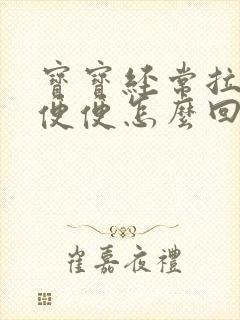 寶寶經常拉
便便怎麼回
崔嘉夜禮